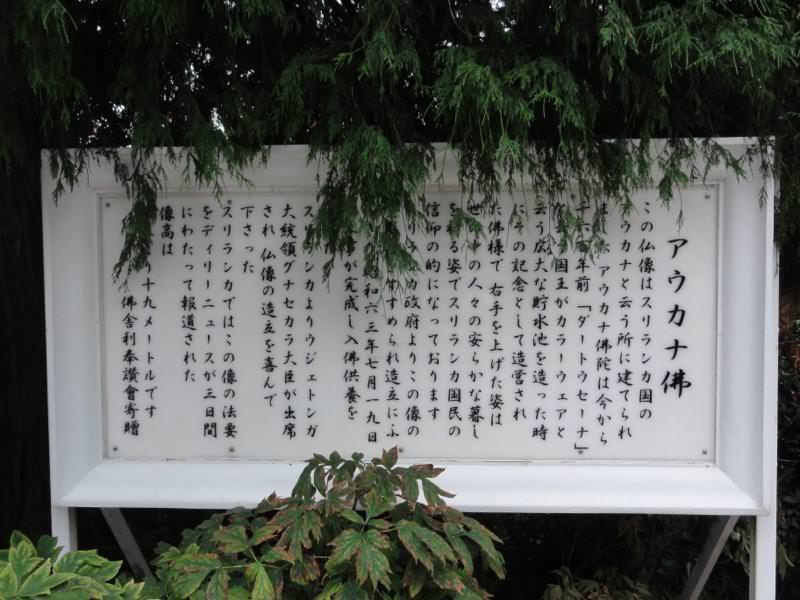 アウカナ佛
この仏像はスリランカ国の
ウカナと云う所に建てられ
ました アウカナ佛陀は今から
年前「ダートウセーナ」
国王がカラーウェアと
云う広大な貯水池を造った時
にその記念として造営され
た佛様で 右手を上げた姿は
世 中の人々の安らかな暮し
を る姿でスリランカ国民の
信仰の的になっております
リラ カ政府よりこの像の
すすめられ造立にふ
昭和六三年七月一九日
が完成し入佛供養を
スリランカよりウジェトンガ
大統領グナセカラ大臣が出席
され 仏像の造立を喜んで
下さった
スリランカではこの像の法要
をディリーニュースが三日間
にわたって報道された
像高は
り十九メートルです
佛舎利奉讃會寄贈